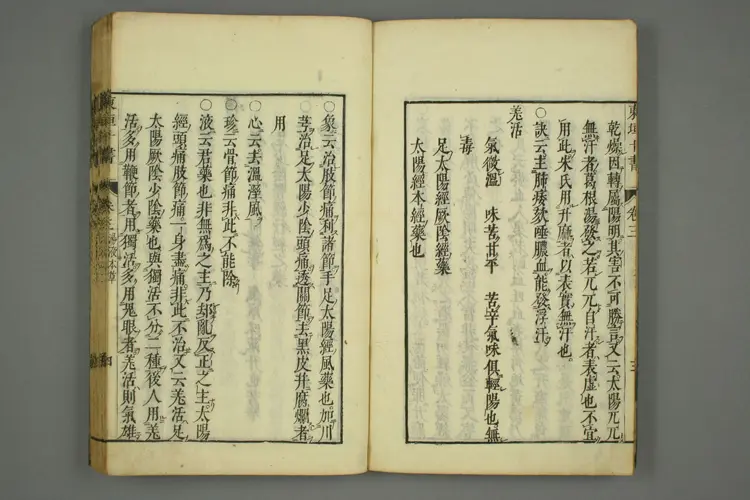 乾燥因轉屬陽明其害不可勝言又云太陽几几
無汗者葛根湯發之若几几自汗者表虛也不宜
用此朱氏用升麻者以表實無汗也
○訣云主肺痿欬唾膿血能發浮汗
羌活
氣微溫 味苦甘平 苦辛氣味俱輕陽也無
毒
足太陽經厥陰經藥
太陽經本經藥也
○象云治肢節痛利諸節手足太陽經風藥也加川
芎治足太陽少陰頭痛透關節去黑皮幷腐爛者
用
○心云去溫溼風
○珍云骨節痛非此不能除
○液云君藥也非無爲之主乃却亂反正之主太陽
經頭痛肢節痛一身盡痛非此不治又云羌活足
太陽厥陰少陰藥也與獨活不分二種後人用羌
活多用鞭節者用獨活多用鬼眼者羌活則氣雄
東垣十書
卷三